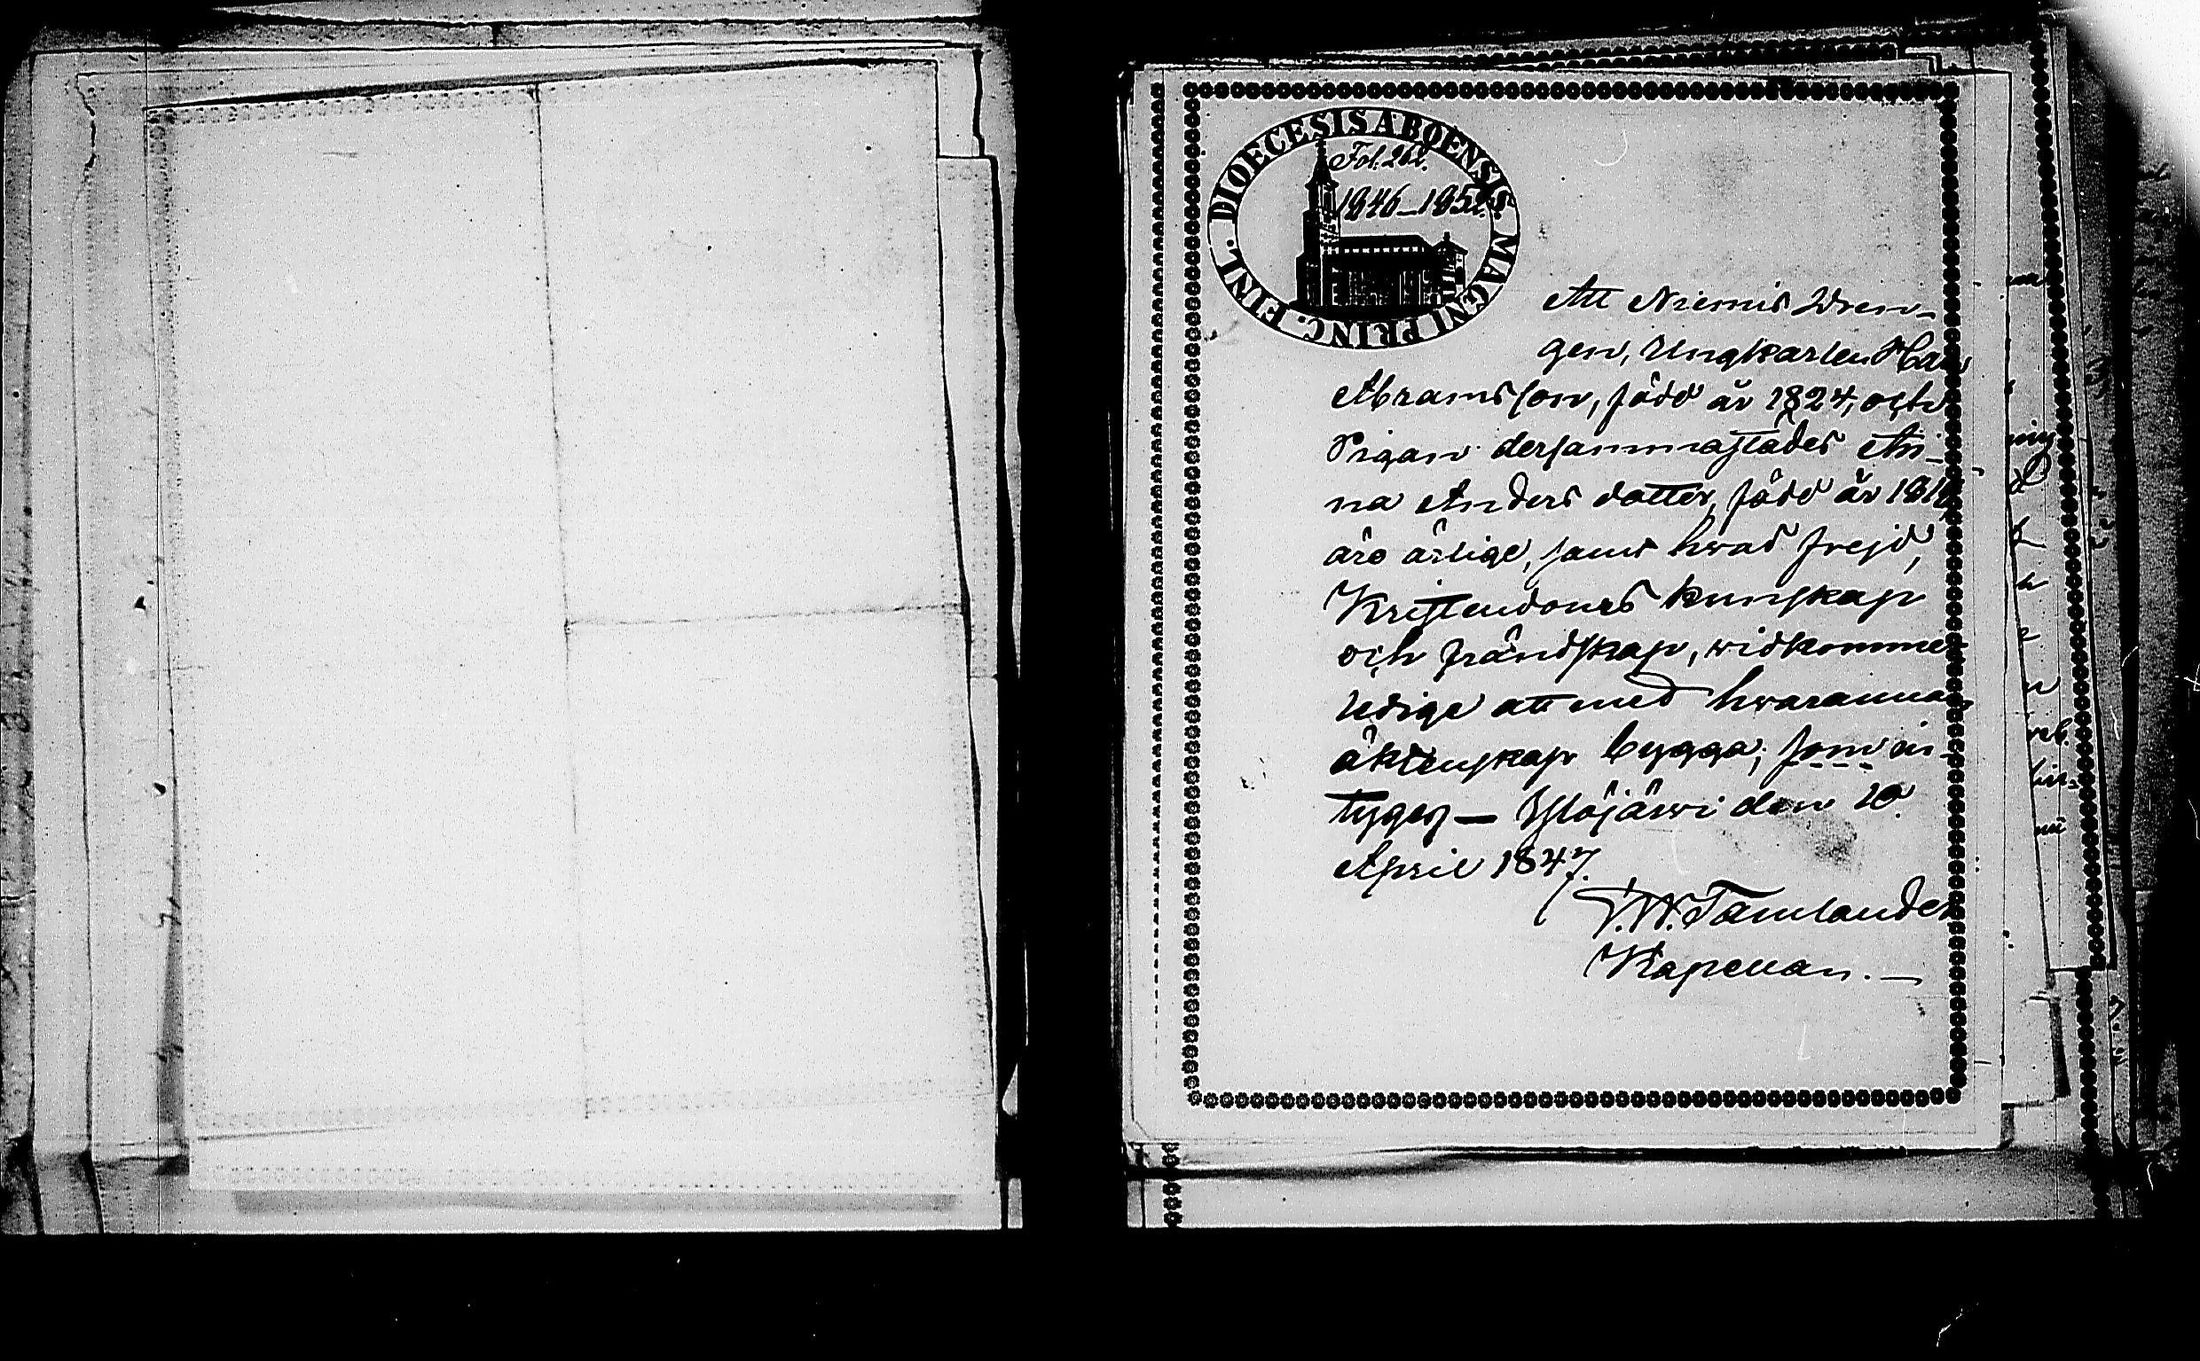 DIOECESIS ABOENSIS. MAGNI PRINC. FINL.
Fol. 262.
1846–1852.
Att Niemis Dren-
gen, Ungkarlen
Abramsson, född år 1824, och
Pigan dersammastädes An-
na Anders dotter, född år
äro ärlige, samt hvad frejd,
Kristendoms kunskap
och frändskap, widkommer
ledige att med hvarannan
äktenskap bygga; som in-
tygas — Ylöjärwi den 10.
April 1847.
Tamlander
Kapellan. —